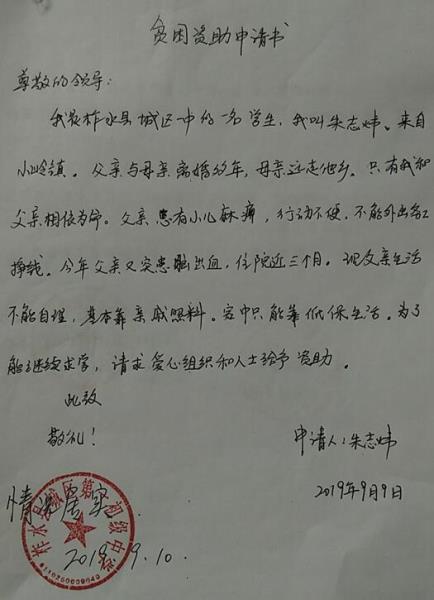 贫困资助申请书
尊敬的领导:
我是柞水县城区一中的一名学生,我叫朱志炜。来自
小岭镇。父亲与母亲离婚多年,母亲远走他乡。只有我和
父亲相依为命。父亲患有小儿麻痹,行动不便,不能外出务工
挣钱。今年父亲又突患脑出血,住院近三个月。现父亲生活
不能自理,基本靠亲戚照料。家中只能靠低保生活。为了
能继续求学,请求爱心组织和人士给予资助。
此致
敬礼!
申请人:朱志炜
2019年9月9日
情况属实
2019.9.10.
柞水县城区第一初级中学